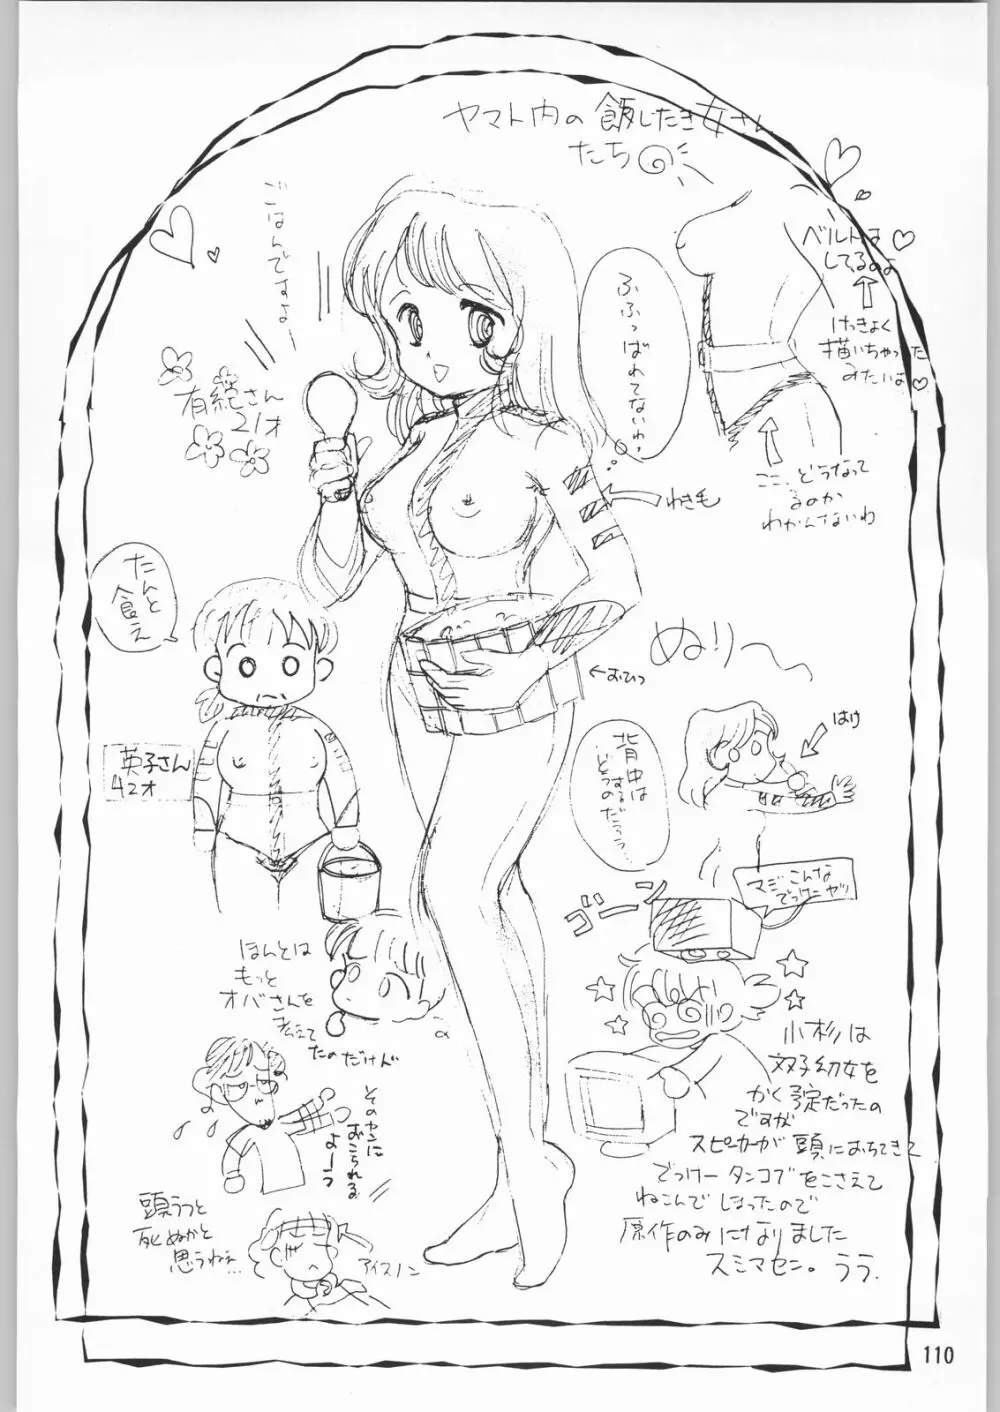 ヤマト内の飯したき女さん
たち
ごはんですよー
有紀さん
21才
ふふっ
ばれてないわ。
ベルトは
してるのよ
けっきょく
描いちゃった
みたいな
ここ、どうなって
るのか
わかんないわ
わき毛
たんと
食え
英子さん
42才
←おひつ
ぬり〜
はけ
背中は
どうする
のだろう…
マジこんな
でっけーヤツ
ゴーン
ほんとは
もっと
オバさんを
考えて
たのだけど
そのヤンに
おこられる
よーう
頭うつと
死ぬかと
思うねぇ…
アイスノン
小杉は
双子幼女を
かく予定だったの
ですが
スピーカーが頭におちてきて
でっけータンコブをこさえて
ねこんでしまったので
原作のみになりました
スミマセン。うう.
110